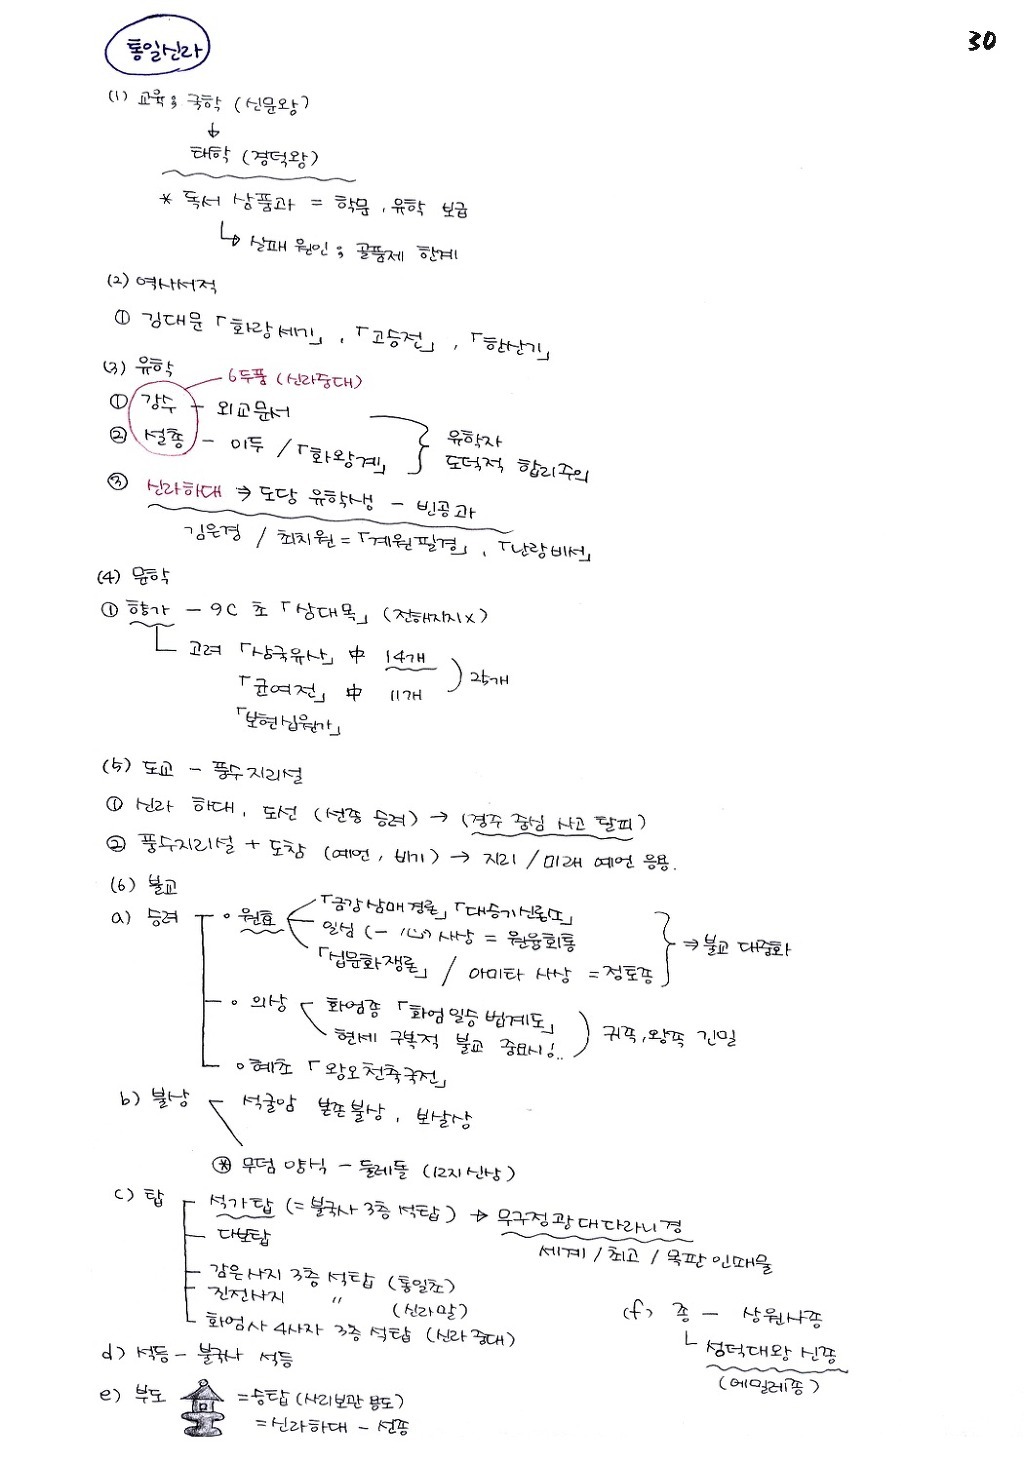 30
통일신라
(1) 교육 ; 국학 (신문왕)
↓
태학 (경덕왕)
* 독서 상품과 = 학문, 유학 보급
↳ 실패 원인 ; 골품제 한계
(2) 역사서적
① 김대문 「화랑세기」, 「고승전」, 「한산기」
(3) 유학
6두품 (신라중대)
① 강수 - 외교문서
② 설총 - 이두 / 「화왕계」
유학자
도덕적 합리주의
③ 신라하대 → 도당 유학생 - 빈공과
김운경 / 최치원 = 「계원필경」, 「난랑비서」
(4) 문학
① 향가 - 9C 초 「삼대목」 (전해지지X)
고려 「삼국유사」 中 14개
「균여전」 中 11개
25개
「보현십원가」
(5) 도교 - 풍수지리설
① 신라 하대, 도선 (선종 승려) → (경주 중심 사고 탈피)
② 풍수지리설 + 도참 (예언, 비기) → 지리 / 미래 예언 응용.
(6) 불교
a) 승려
◦ 원효
「금강삼매경론」 「대승기신론소」
일심 (一心) 사상 = 원융회통
「십문화쟁론」 / 아미타 사상 = 정토종
⇒ 불교 대중화
◦ 의상
화엄종 「화엄일승법계도」
현세 구복적 불교 중요시!..
귀족, 왕족 긴밀
◦ 혜초 「왕오천축국전」
b) 불상 - 석굴암 본존불상, 보살상
* 무덤 양식 - 둘레돌 (12지신상)
c) 탑
석가탑 (= 불국사 3층 석탑) → 무구정광대다라니경
다보탑
세계 / 최고 / 목판 인쇄물
감은사지 3층 석탑 (통일초)
진전사지 〃 (신라말)
화엄사 4사자 3층 석탑 (신라 중대)
d) 석등 - 불국사 석등
e) 부도 = 승탑 (사리보관 용도)
= 신라하대 - 선종
(f) 종 - 상원사종
성덕대왕 신종
(에밀레종)